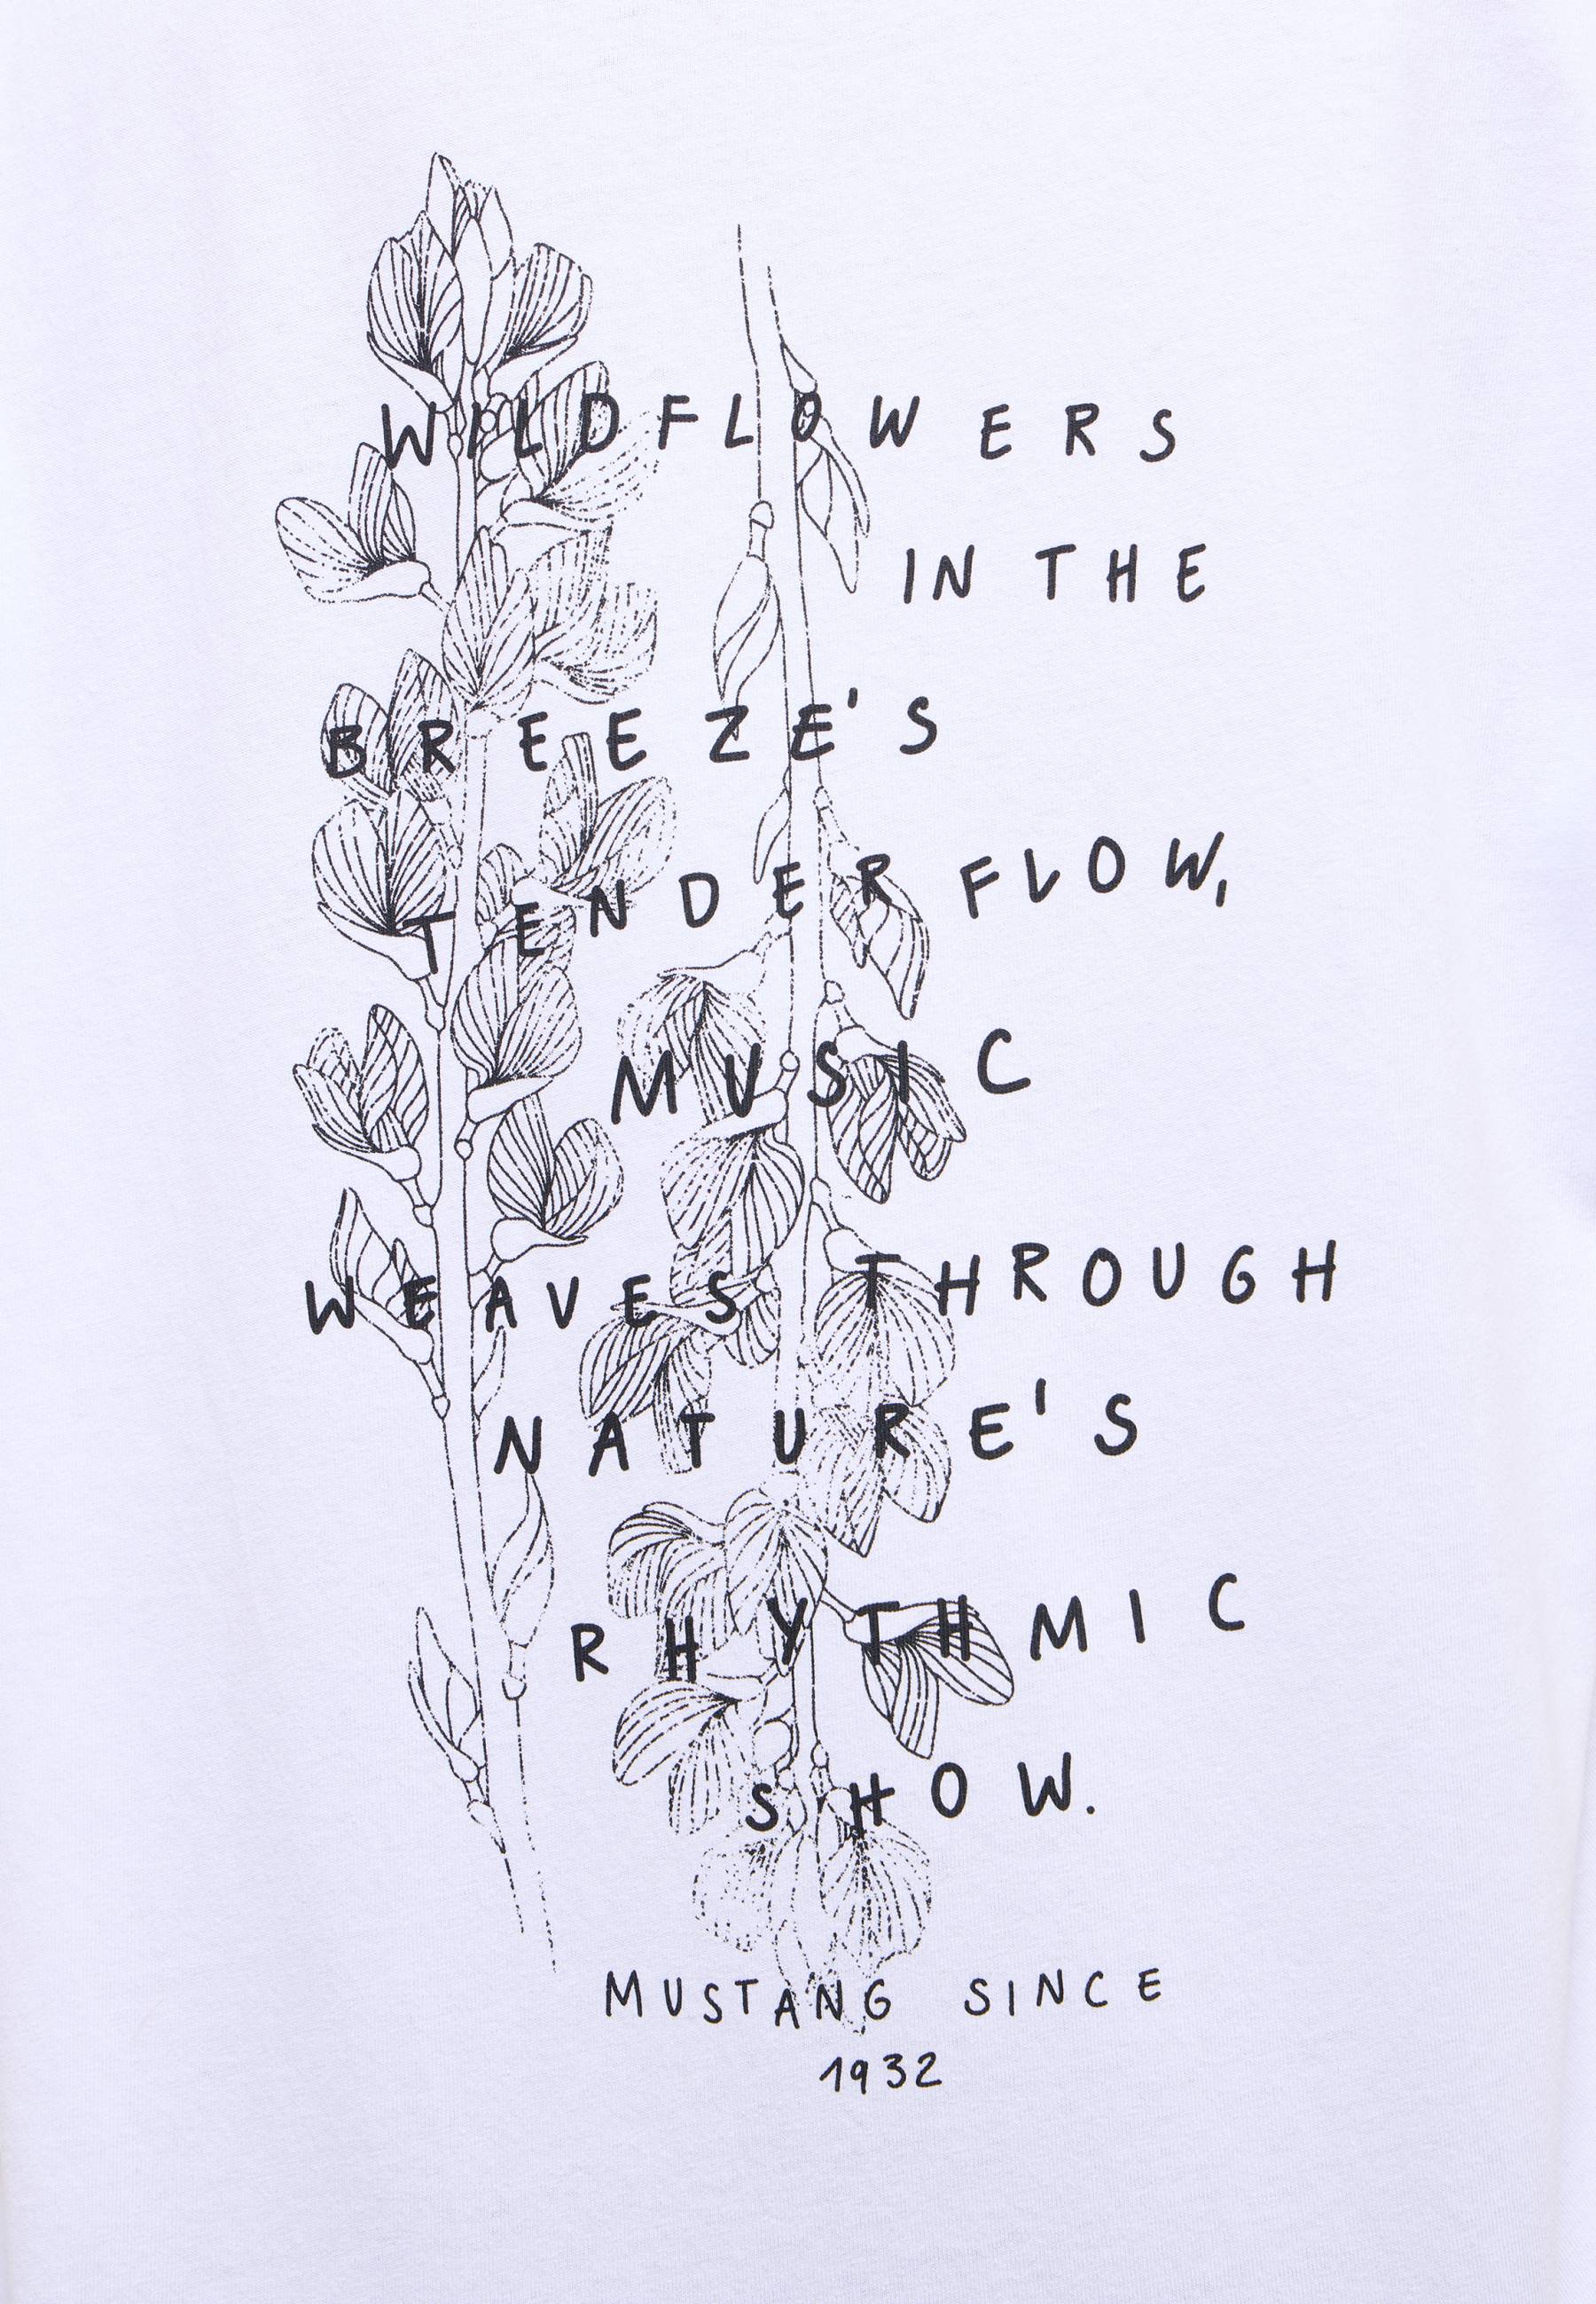 WILDFLOWERS
IN THE
BREEZE'S
TENDER FLOW,
MUSIC
WEAVES THROUGH
NATURE'S
RHYTHMIC
SHOW.
MUSTANG SINCE
1932